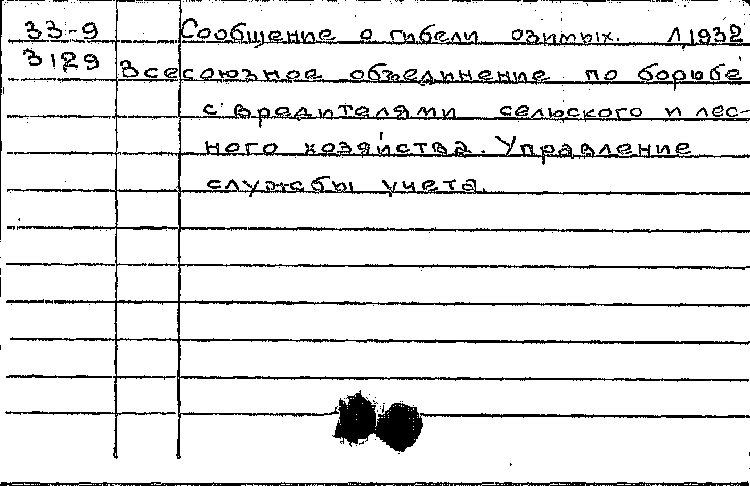 33-9 Сообщение о гибели озимых. Л,1932
3129 Всесоюзное объединение по борьбе
с вредителями сельского и лес-
ного хозяйства. Управление
службы учета.